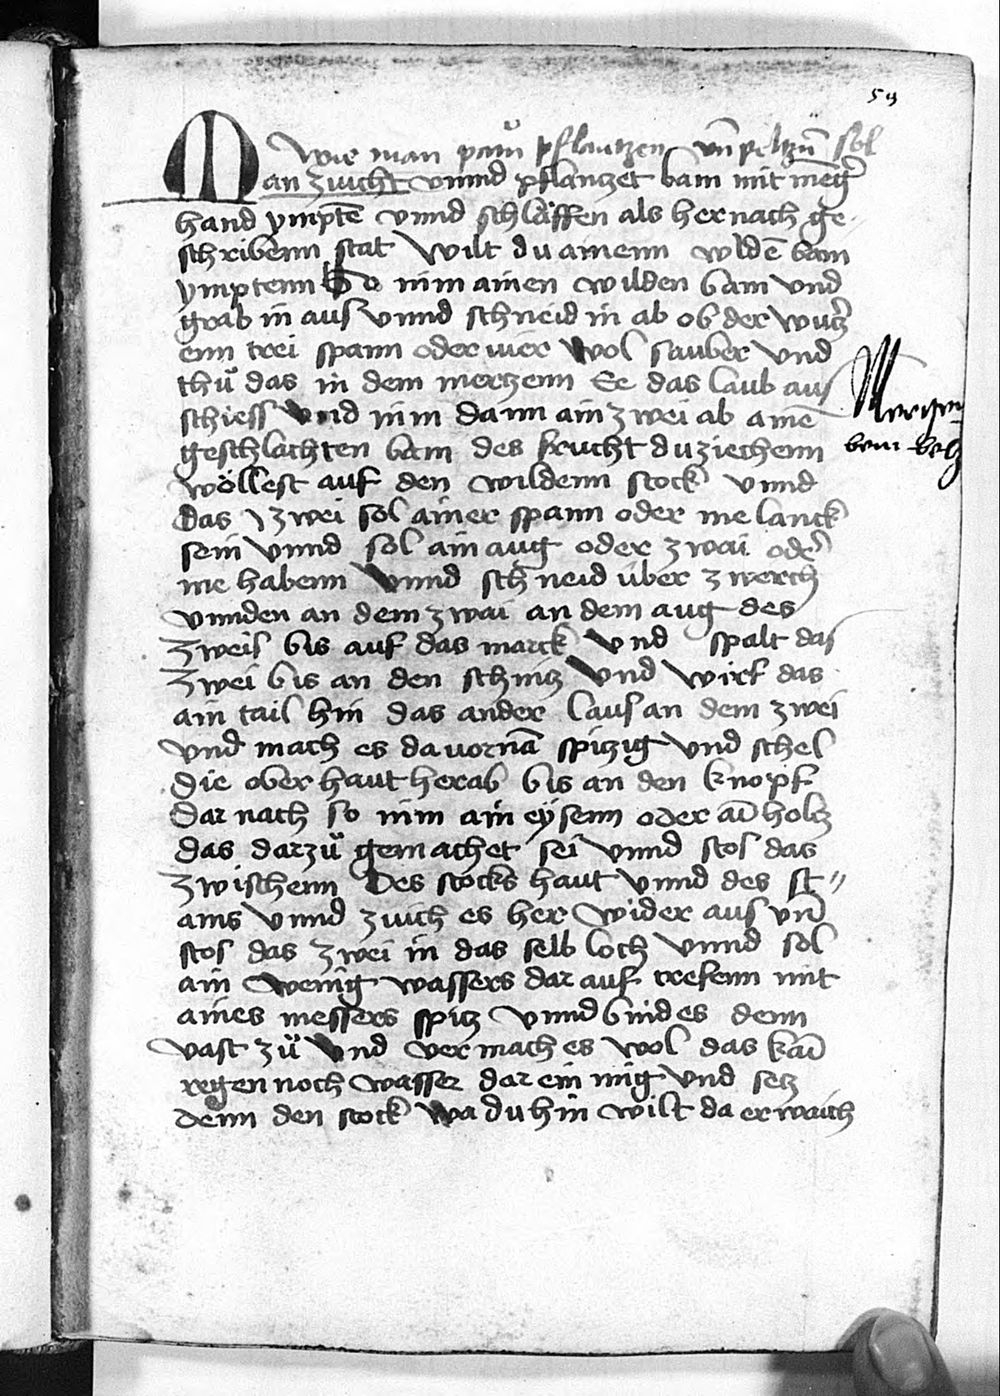 59
Wie man paum pflantzen vn̄ peltzn̄ sol
Man zuicht vnnd pflantzet bam mit meng̉
hand ymptē vnnd schlöffen als hernach ge-
schribenn stat Wilt du amenn wldē bam
ymptenn So nim ainen wilden bam vnd
grab in aus vnnd schneid in ab ob der wurtz
enn trei spann oder vier wol sauber vnd
thů das in dem mertzenn Ee das laub aus
schiess vnd nim dann ain zwei ab amē
geschlachten bam des frucht du ziechenn
wöllest auf den wildenn stock vnnd
das zwei sol ainer spann oder me lanck
sein vnnd sol ain aug oder zwai oder
me habenn vnnd schneid über zwerch
vnnden an dem zwai an dem aug des
zweis bis auf das marck vnd spalt das
zwei bis an den schnitz vnd wirf das
ain tail hin das ander laus an dem zwei
vnd mach es da vornā spitzig vnd schel
die ober haut herab bis an den knopf
Dar nach so nim ain eysenn oder aī holtz
das darzů gemachet sei vnnd stos das
zwischenn Des stocks haut vnnd des st//
ams vnnd zuich es her wider aus vn̄
stos das zwei in das selb loch vnnd sol
ain wenig wassers dar auf trefenn mit
aines messers spitz vnnd bind es denn
vast zů vnd vermach es wol das kaī
regen noch wasser dar ein mig vnd setz
denn den stock wa du hin wilt da er waich